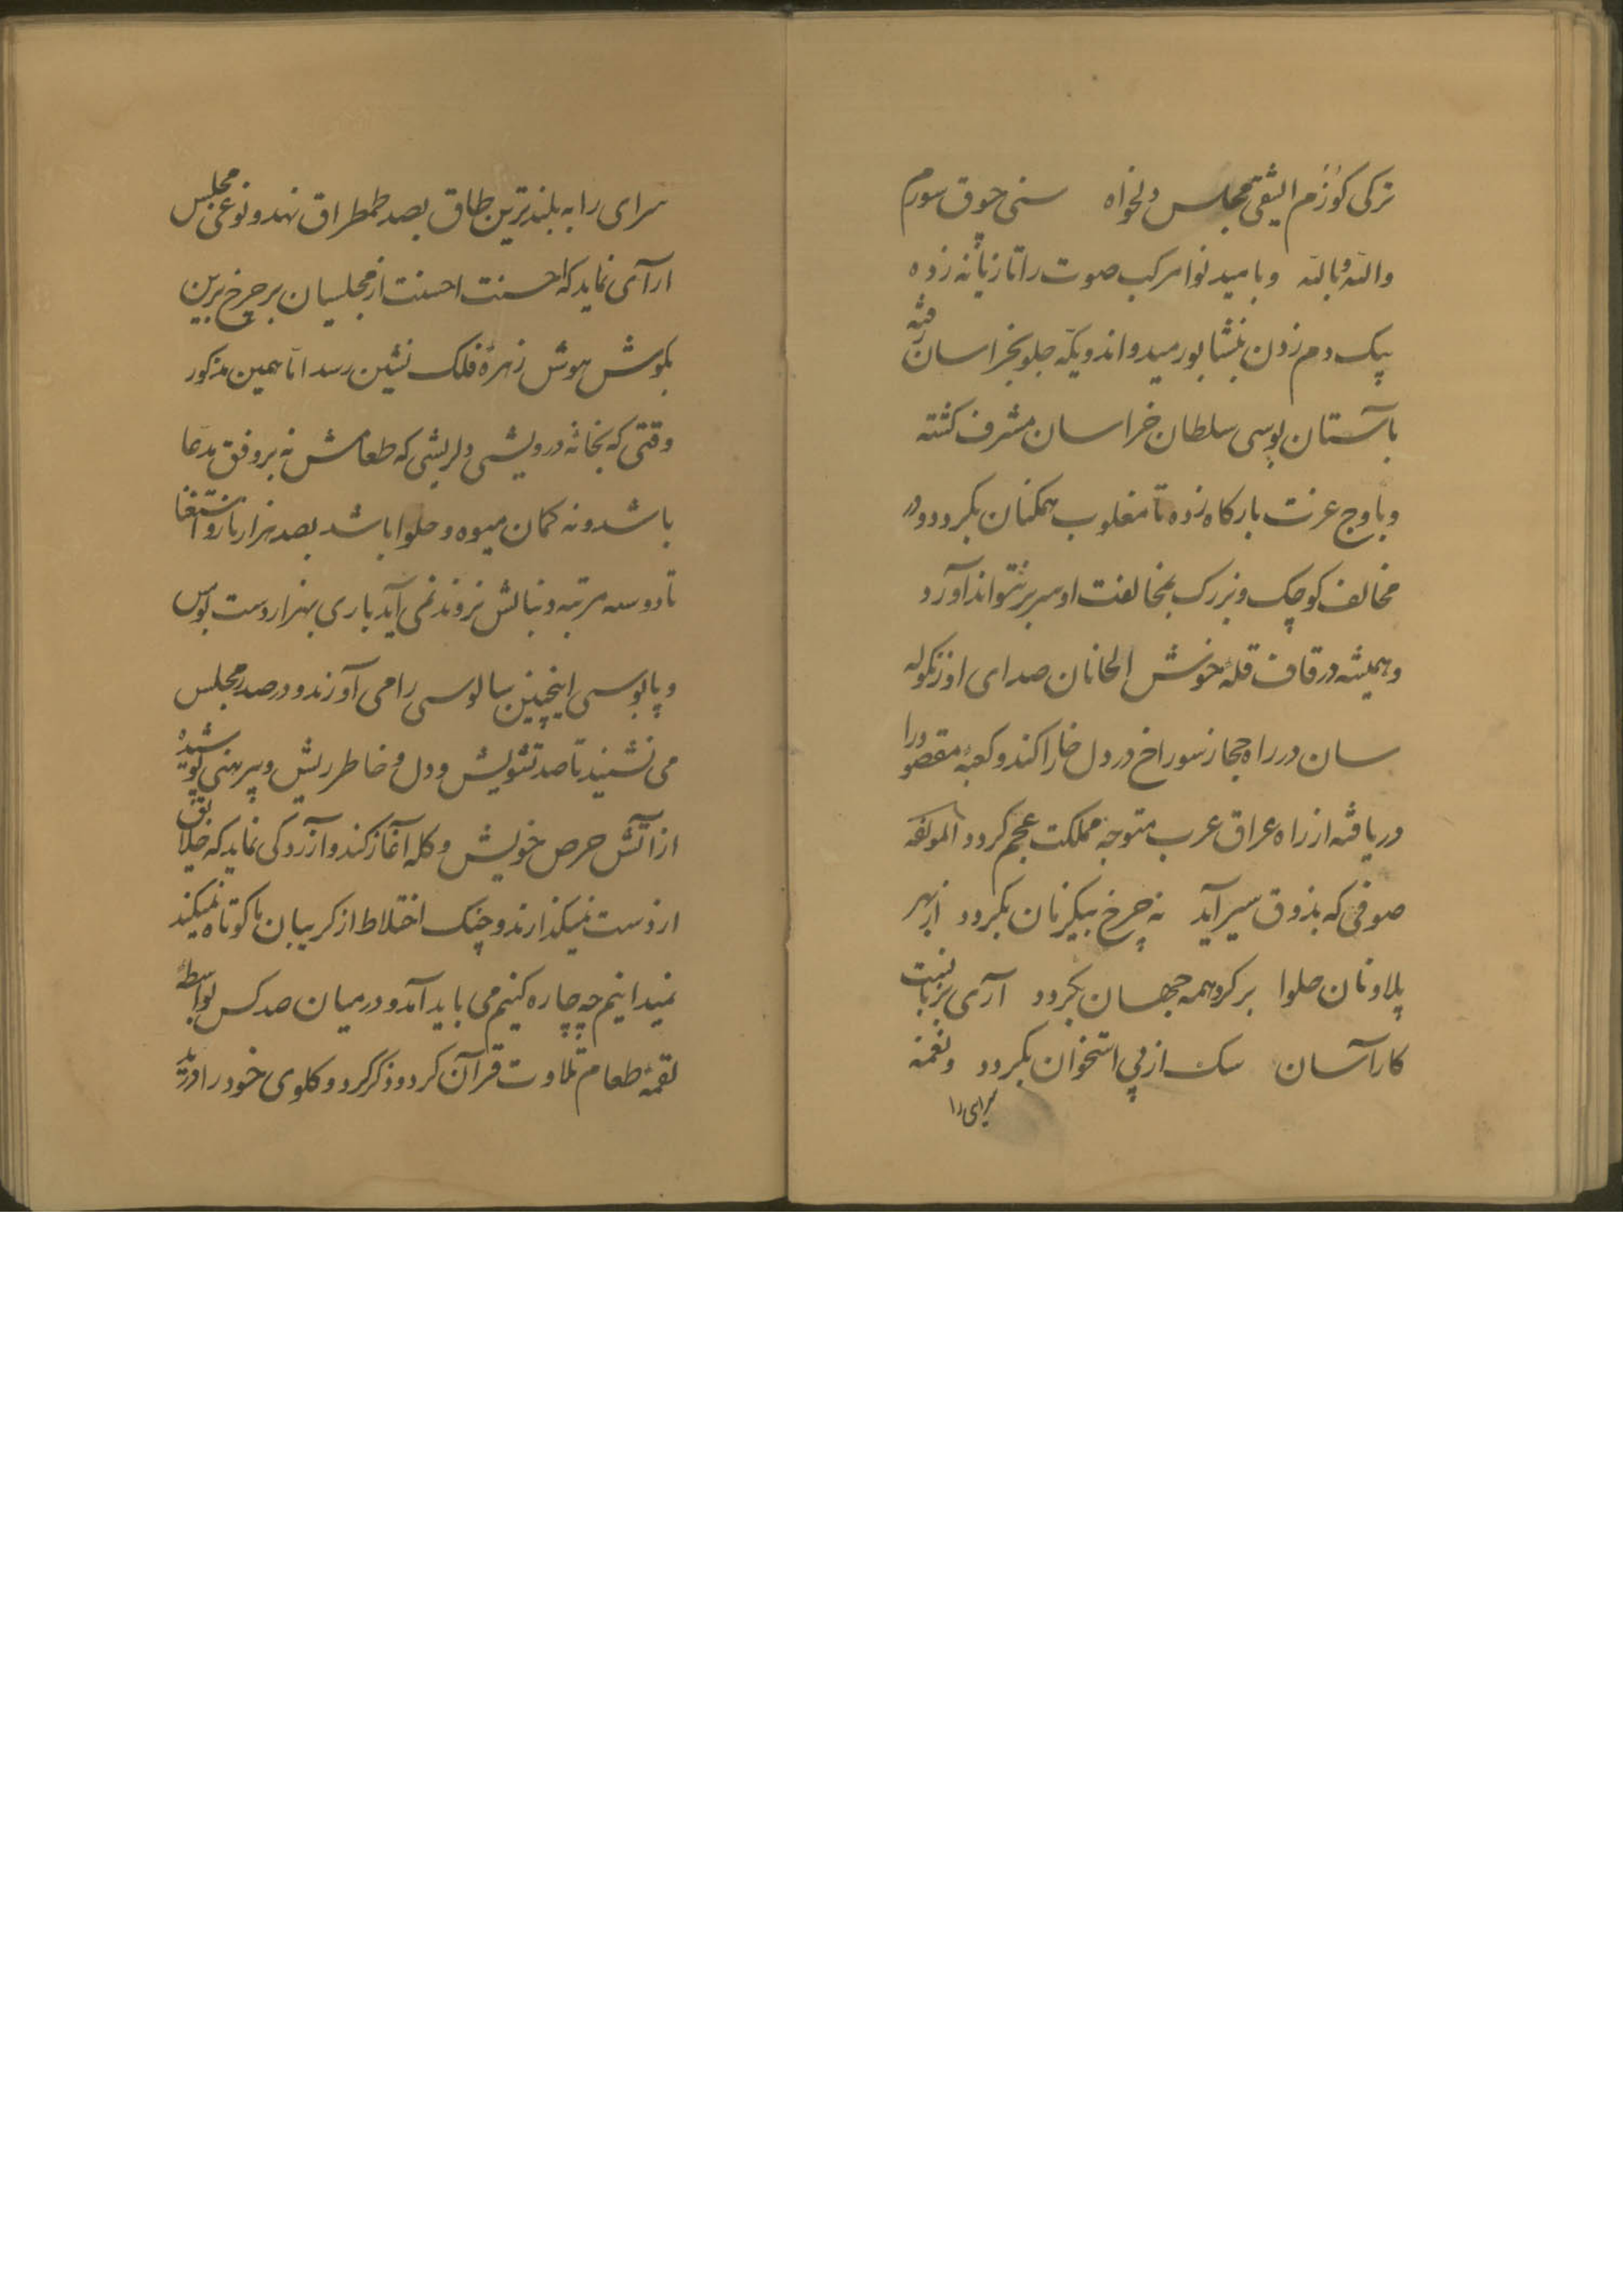 ترکی کوزم ایشقی مجلس دلخواه سنی چوق سورم
والله و بالله و بامید نوا مرکب صوت را تازیانه زده
بیک دم زدن بنشابور میدواند و یکه جلو بخراسان رفته
بآستان بوسی سلطان خراسان مشرف کشته
و باوج عزت بارکاه زده تا مغلوب همکنان نکردد و در
مخالف کوچک و بزرک بمخالفت او سر بر نتواند آورد
و همیشه در قاف قلهٔ خوش الحانان صدای او زنکوله
سان در راه حجاز سوراخ در دل خارا کند و کعبهٔ مقصود را
دریافته از راه عراق عرب متوجه مملکت عجم کردد لمولفه
صوفی که بذوق سیر آید نه چرخ بیکزمان بکردد از بهر
پلاو نان حلوا بر کرد همه جهان بکردد آری بر باب نیست
کار آسان سک از پی استخوان بکردد و نغمهٔ
سرای را
سرای را به بلندترین طاق بصد طمطراق نهد و نوعی مجلس
ارآی نماید که احسنت احسنت از مجلسیان بر چرخ برین
بکوش هوش زهرهٔ فلک نشین رسد اما همین مذکور
وقتی که بخانهٔ درویشی دلریشی که طعامش نه بر وفق مدعا
باشد و نه کمان میوه و حلوا باشد بصد هزار ناز و استغنا
تا دو سه مرتبه دنبالش نروند نمی آید باری بهزار دست بوس
و پابوسی اینچنین سالوسی را می آورند و در صدر مجلس
می نشیند تا صد تشویش و دل و خاطر ریش و پیرهنی پوشیده
از آتش حرص خویش و کله آغاز کند و آزردکی نماید که خلایق
از دست نمیکذارند و چنک اختلاط از کریبان ما کوتاه نمیکنند
نمیدانیم چه چاره کنیم می باید آمد و در میان صد کس بواسطهٔ
لقمهٔ طعام تلاوت قرآن کرد و ذکر کرد و کلوی خود را درید